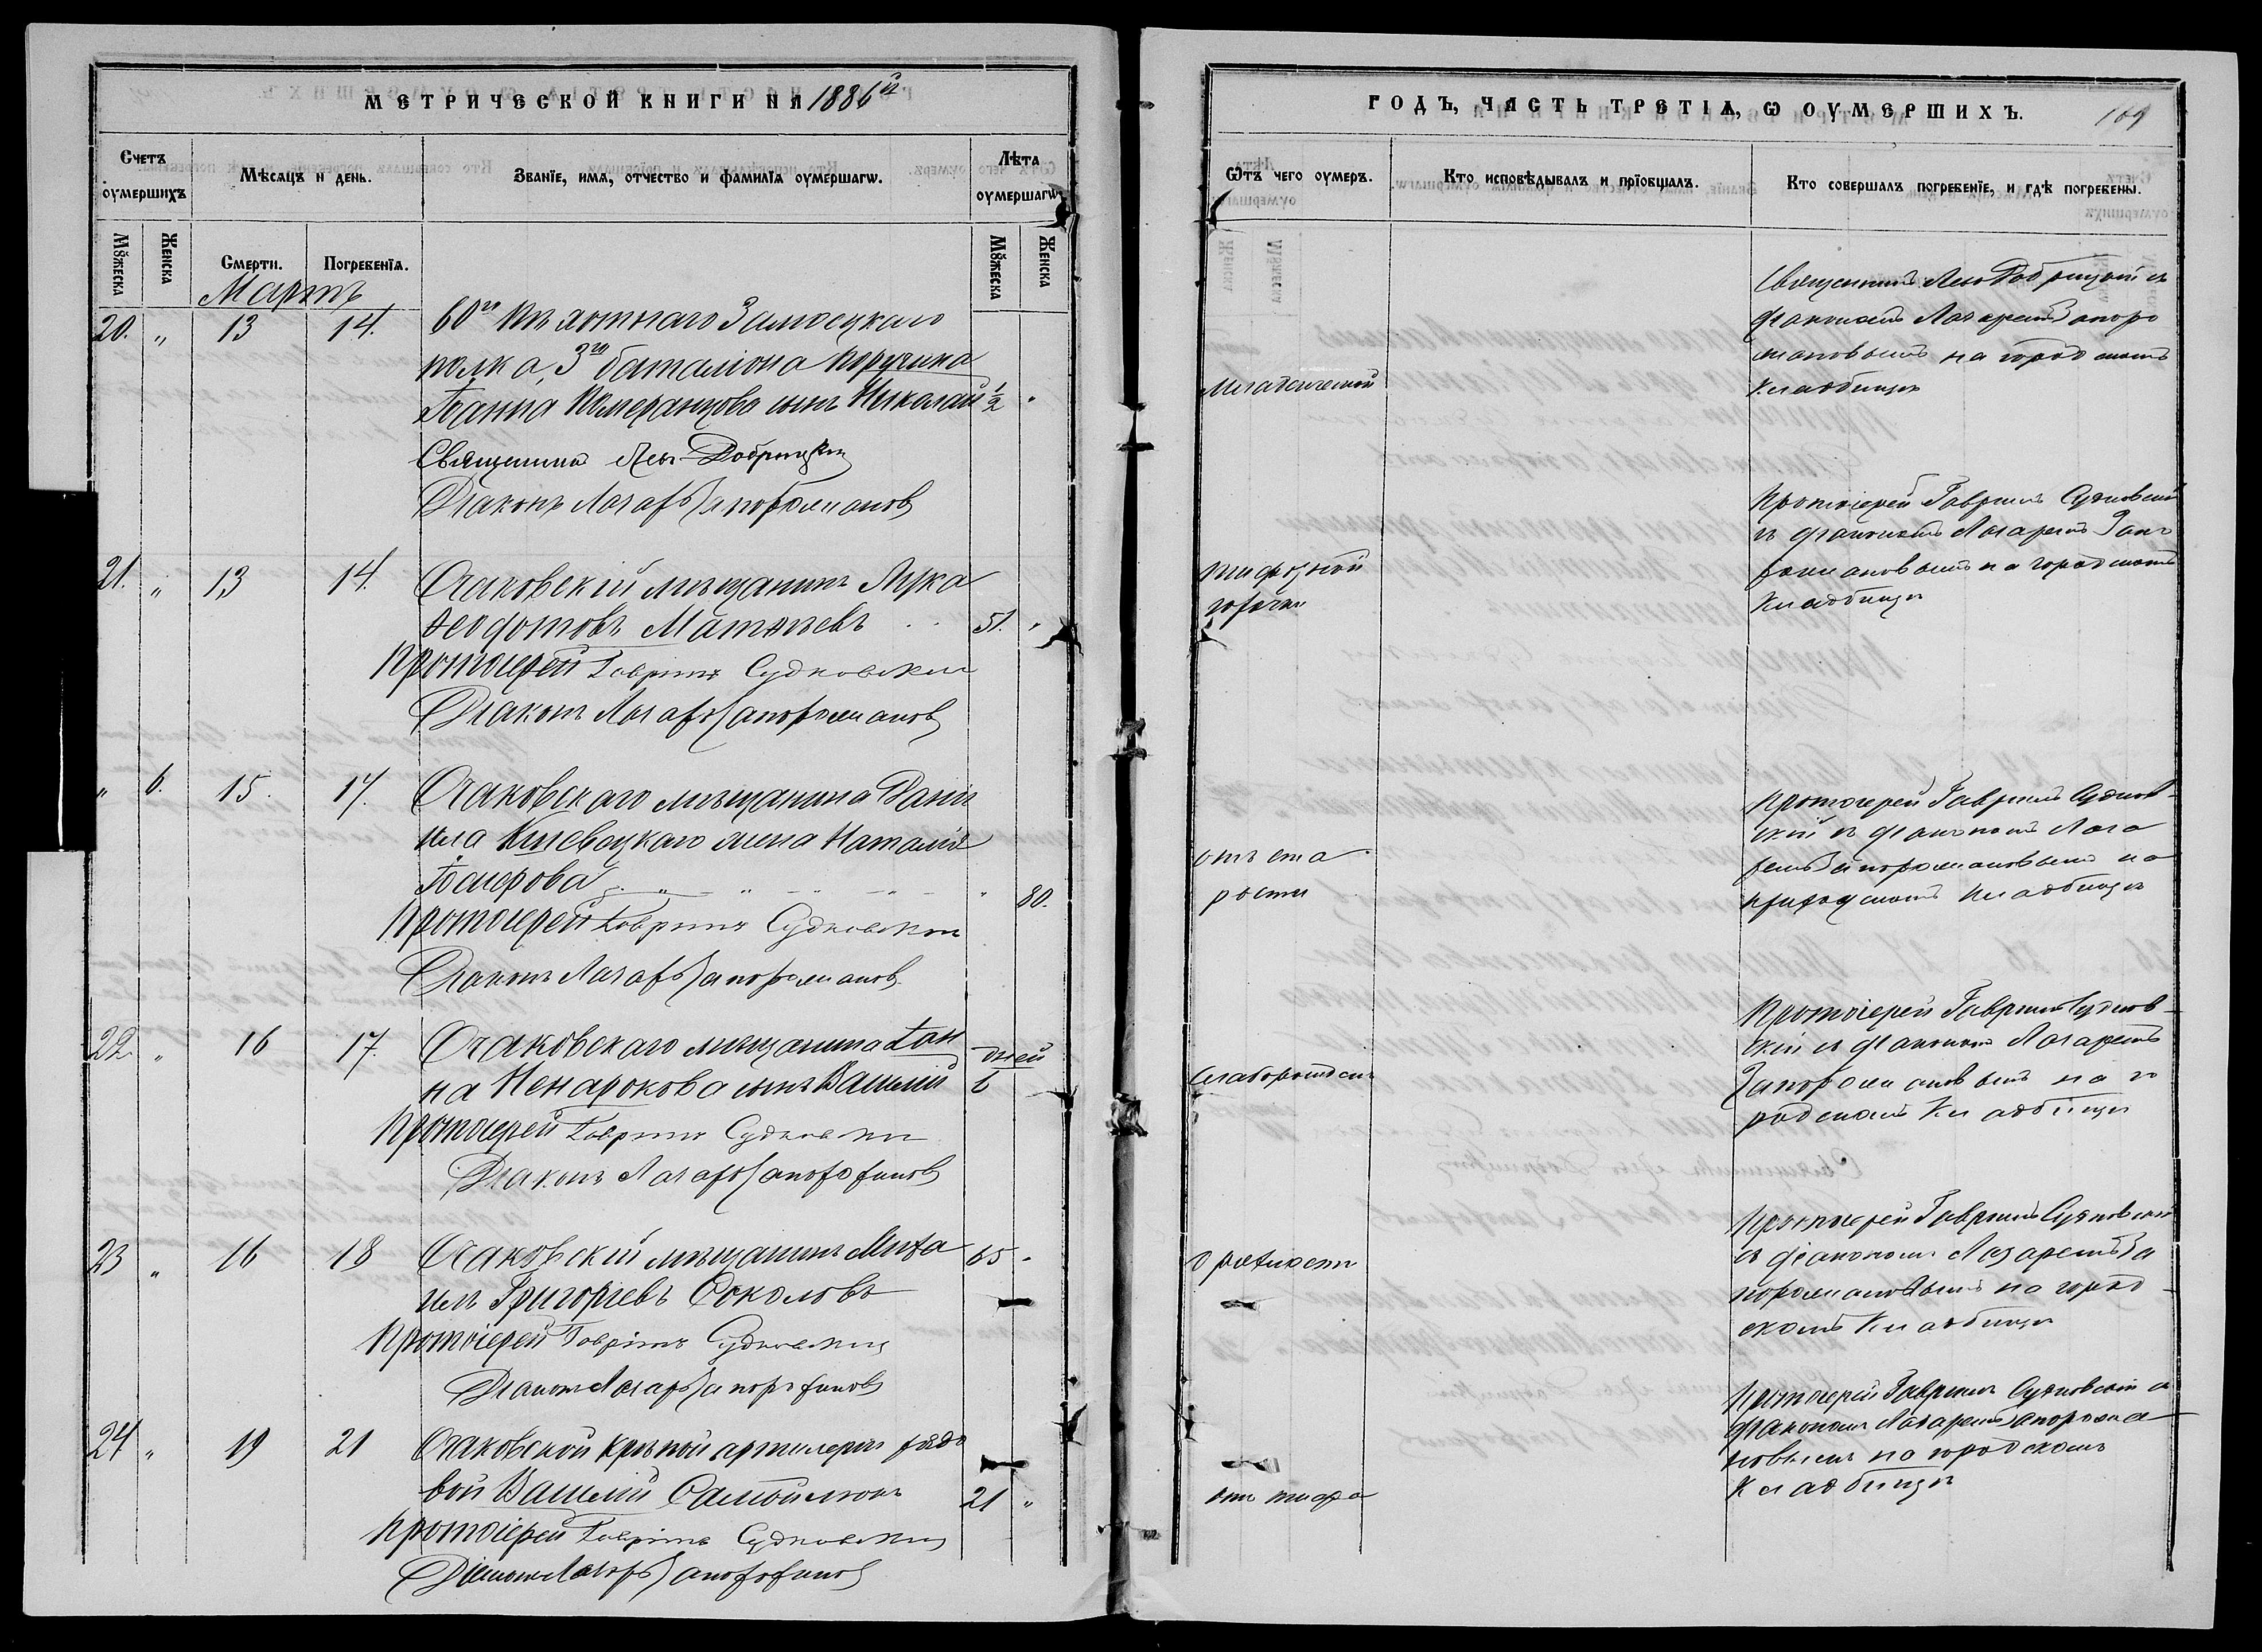 МЕТРИЧЕСКОЙ КНИГИ НА 1886й
Счетъ оумершихъ
Мѣсяцъ и день.
Званїе, имя, отчество и фамилїя оумершагѡ.
Лѣта оумершагѡ
Мꙋжеска
Женска
Смерти.
Погребенїя.
Мꙋжеска
Женска
Мартъ
20. " 13 14. 60го пѣхотнаго Замосцкаго
полка, 3го баталіона поручика
Іоанна Померанцова сынъ Николай 1/2 "
Священникъ Левъ Добрицкій
Діаконъ Лазарь Запорожановъ
21. " 13 14. Очаковскій мѣщанинъ Лука
Ѳеодотовъ Матвѣевъ 51. "
Протоіерей Гавріилъ Судковскій
Діаконъ Лазарь Запорожановъ
" 6. 15. 17. Очаковскаго мѣщанина Дани
ила жена Наталія
" 80.
Протоіерей Гавріилъ Судковскій
Діаконъ Лазарь Запорожановъ
22. " 16 17. Очаковскаго мѣщанина Іоан дней
на Ненарокова сынъ Василій 6
Протоіерей Гавріилъ Судковскій
Діаконъ Лазарь Запорожановъ
23 " 16 18 Очаковскій мѣщанинъ Миха 65 -
илъ Григорьевъ Соколовъ
Протоіерей Гавріилъ Судковскій
Діаконъ Лазарь Запорожановъ
24 " 19 21 Очаковской крѣпой артилеріи рядо
вой Василій Самойлюкъ 21 "
Протоіерей Гавріилъ Судковскій
Діаконъ Лазарь Запорожановъ
ГОДЪ, ЧАСТЬ ТРЕТІѦ, Ѡ ОУМЕРШИХЪ.
109
Ѿтъ чего оумеръ.
Кто исповѣдывалъ и прїобщалъ.
Кто совершалъ погребенїе, и гдѣ погребены.
Младенческой
Священникъ Левъ Добрицкій съ
діакономъ Лазаремъ Запоро
жановымъ на городскомъ
кладбищѣ
тифозной
горячки
Протоіерей Гавріилъ Судковскій
съ діакономъ Лазаремъ Запо
рожановымъ на городскомъ
кладбищѣ
отъ ста
рости
Протоіерей Гавріилъ Судков-
скій съ діакономъ Лаза
ремъ Запорожановымъ на
приходскомъ кладбищѣ
слаборожден
Протоіерей Гавріилъ Судков-
скій съ діакономъ Лазаремъ
Запорожановымъ на го
родскомъ кладбищѣ
Протоіерей Гавріилъ Судковскій
съ діакономъ Лазаремъ За
порожановымъ на город-
скомъ кладбищѣ
отъ тифа
Протоіерей Гавріилъ Судковскій съ
діакономъ Лазаремъ Запорожа
новымъ на городскомъ
кладбищѣ